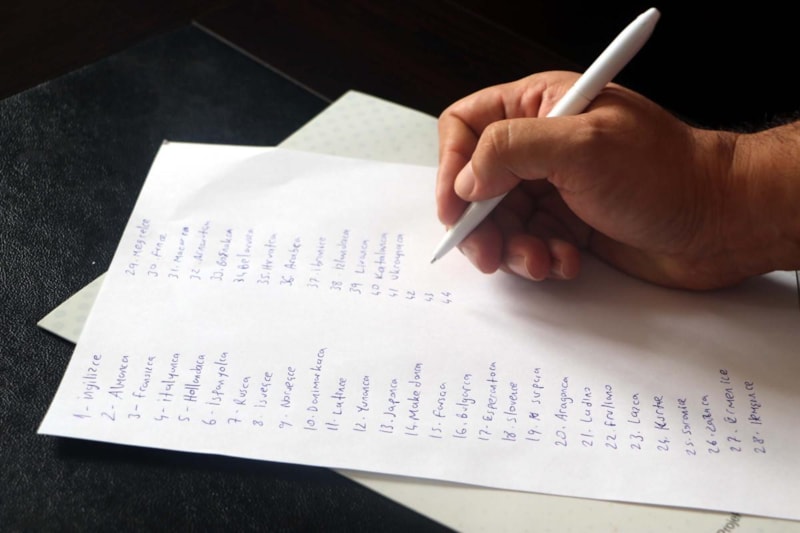 1- ingilizce
2- Almanca
3- Fransızca
4- italyanca
5- Hollandaca
6- İspanyolca
7- Rusca
8. isveçce
9. Norveçce
10. Danimarkaca
11. Latince
12. Yunanca
13. Japonca
14. Makedonca
15. Farsça
16. Bulgarca
17. Esperantoca
18. Slovence
19. Sırpça
20. Aragonca
21. Ladino
22
23. Lazca
24. Kürtçe
25.
26. Zazaca
27. Ermenice
28.
29. Megrelce
30. Fince
31. Macarca
32.
33. Boşnakca
34. Belarusca
35. Hırvatca
36 Arabca
37. ibranice
38. izlandaca
39
40 Katalanca
41 Ukraynaca
42
43
44
Proje